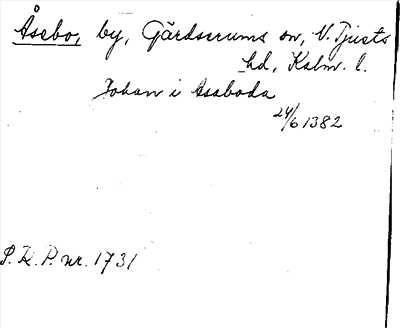 Åsebo, by, Gärdserums sn, N. Tjusts
hd, Kalm. l.
Johan i Asaboda
24/6 1382
S. R. P. nr. 1731